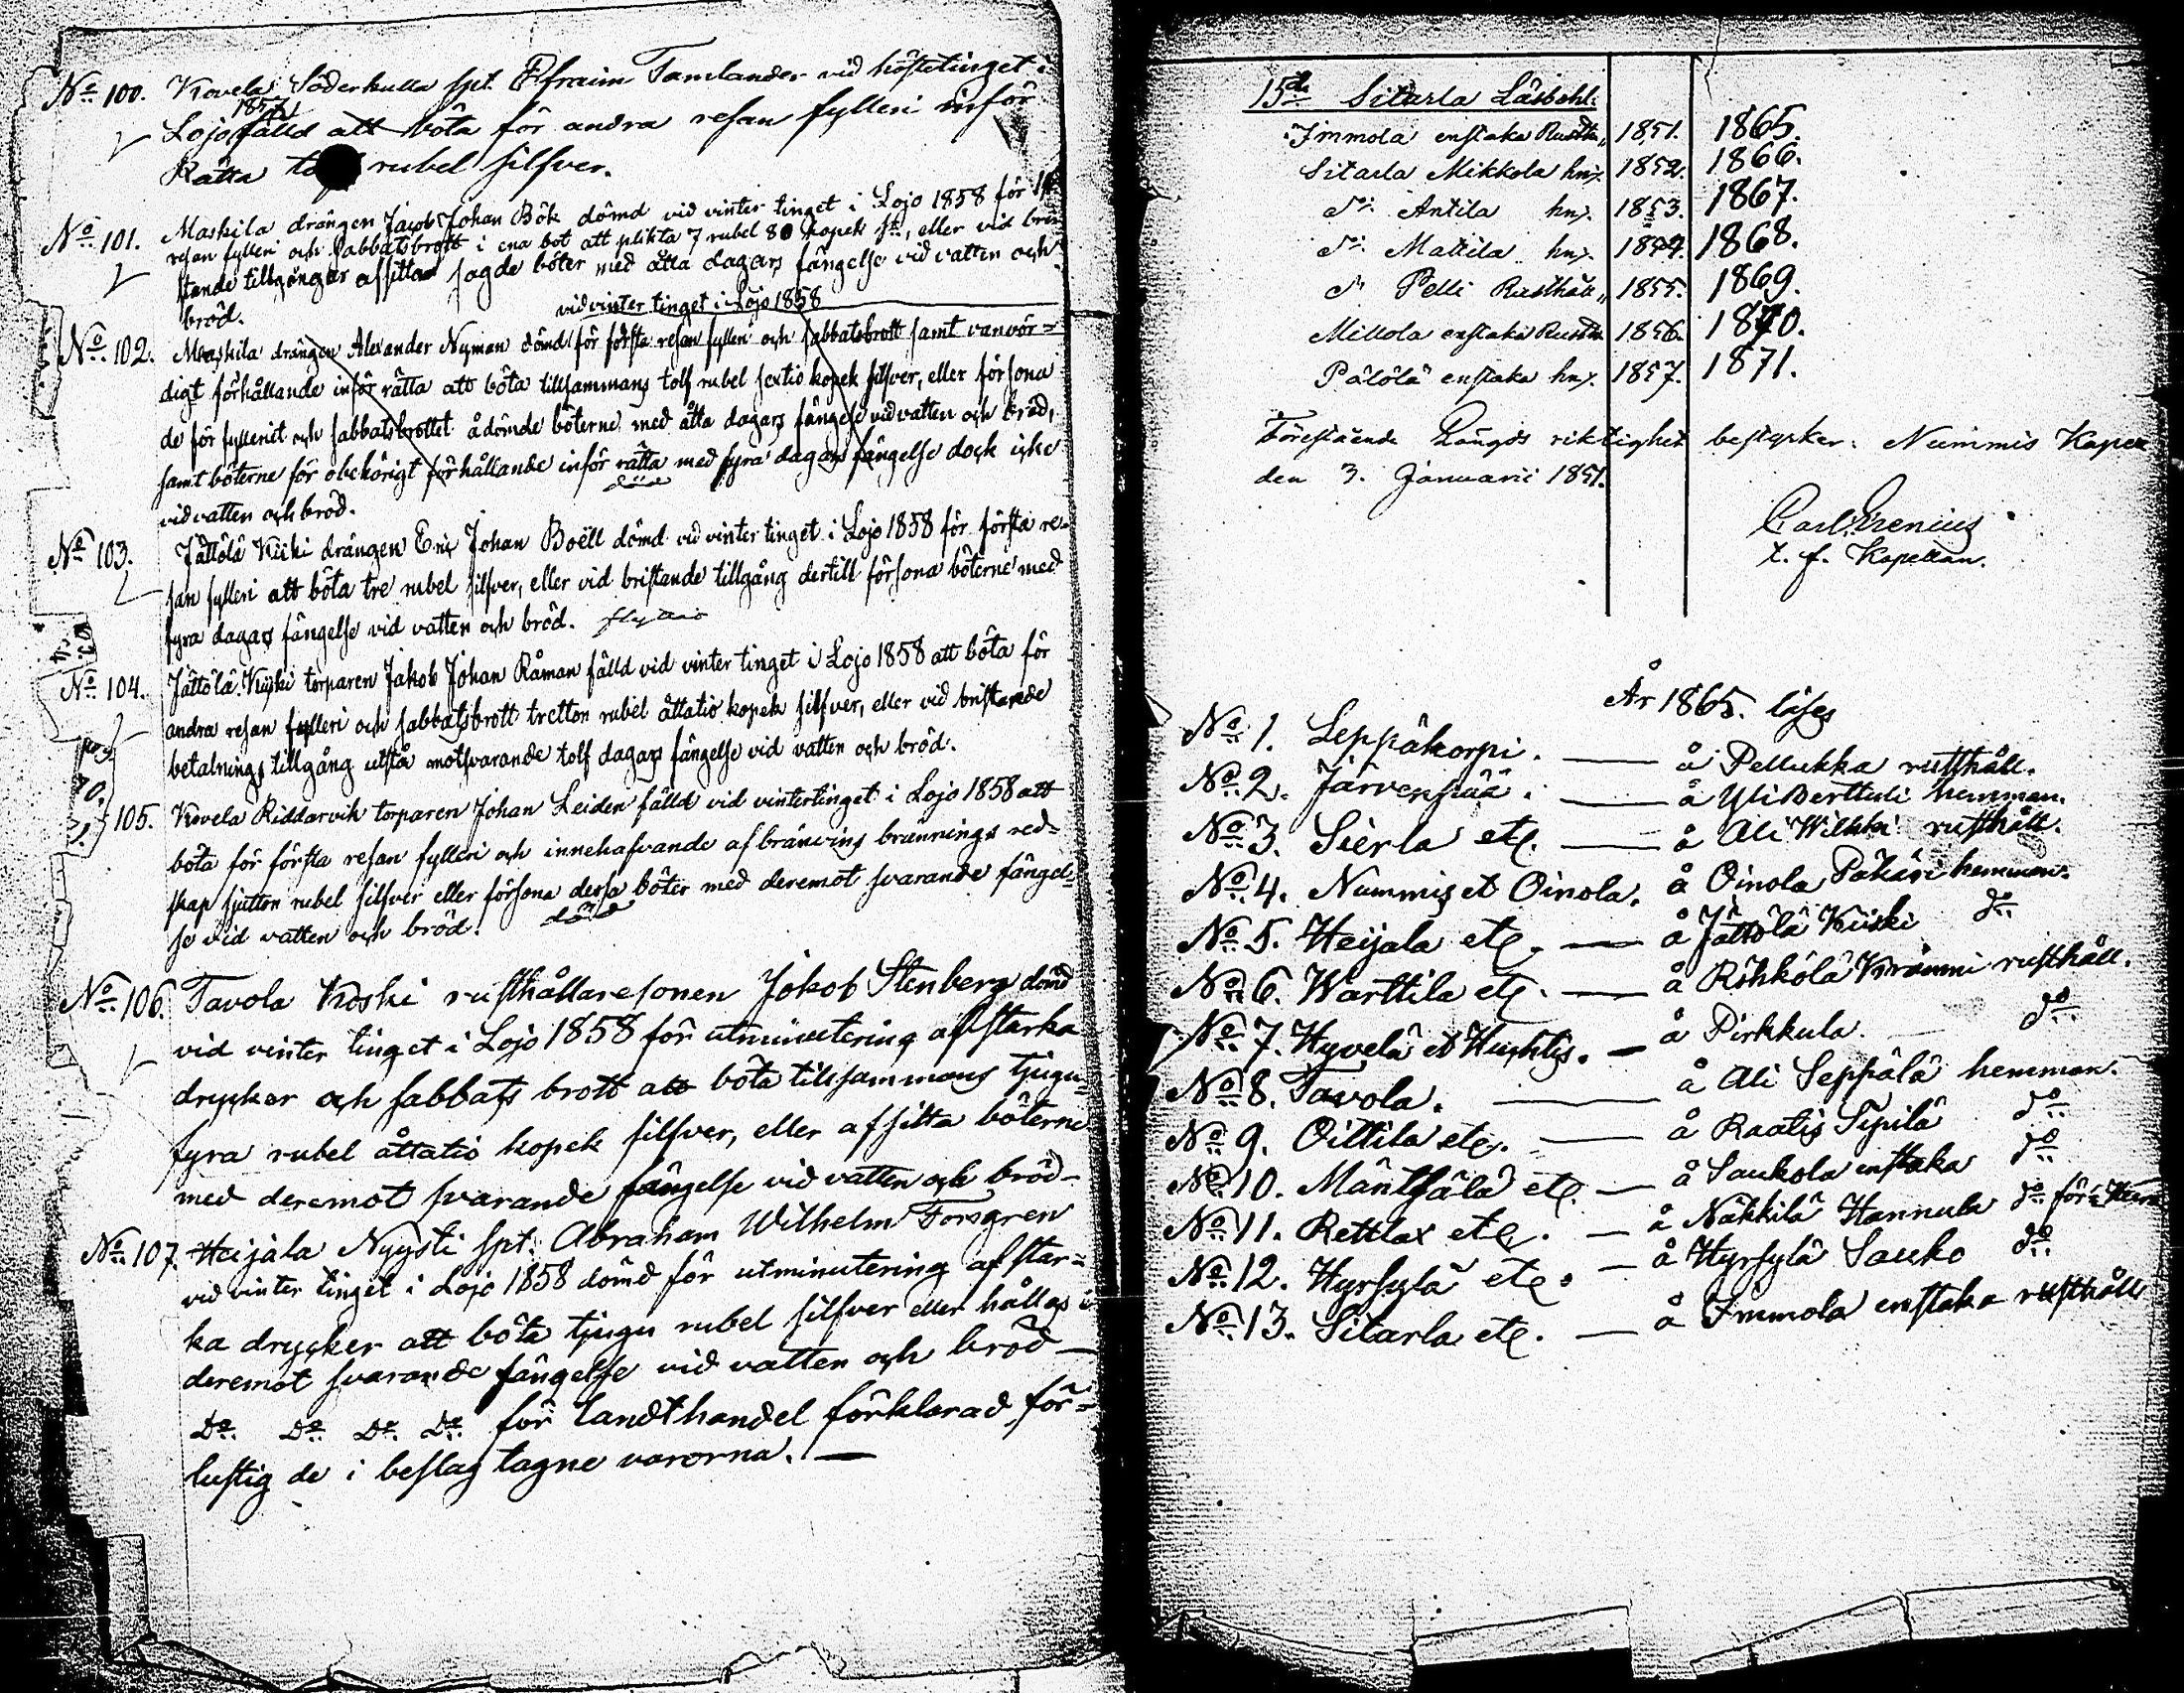 No 100. Kovela Söderkulla spt. Efraim Tamlander vid hösttinget i
1857
Lojo fälld att böta för andra resan fylleri inför
Rätta rubel silfver.
No 101. Maskila drängen Jacob Johan Bök dömd vid vinter tinget i Lojo 1858 för
resan fylleri och sabbatsbrott i ena bot att plikta 7 rubel 80 kopek sr, eller vid bri
stande tillgångar afsitta sagde böter med åtta dagars fängelse vid vatten och
bröd.
vid vinter tinget i Lojo 1858
No 102. Maskila drängen Alexander Nyman dömd för första resan fylleri och sabbatsbrott samt vanvör=
digt förhållande inför rätta att böta tillsammans tolf rubel sextio kopek silfver, eller försona
de för fylleriet och sabbatsbrottet ådömde böterne med åtta dagars fängelse vid vatten och bröd,
samt böterne för obehörigt förhållande inför rätta med fyra dagars fängelse dock icke
vid vatten och bröd. död
No 103. Jättölä Kiiski drängen Eric Johan Boëll dömd vid vinter tinget i Lojo 1858 för första re-
san fylleri att böta tre rubel silfver, eller vid bristande tillgång dertill försona böterne med
fyra dagars fängelse vid vatten och bröd.
No 104. Jättölä Kiiski torparen Jakob Johan Råman fälld vid vinter tinget i Lojo 1858 att böta för
andra resan fylleri och sabbatsbrott tretton rubel åttatio kopek silfver, eller vid bristande
betalnings tillgång utstå motsvarande tolf dagars fängelse vid vatten och bröd.
105. Kovela Riddarvik torparen Johan Leiden fälld vid vintertinget i Lojo 1858 att
böta för första resan fylleri och innehafvande af bränvins brännings red=
skap sjutton rubel silfver eller försona dessa böter med deremot svarande fängel=
se vid vatten och bröd. död
No 106. Tavola Koski rusthållaresonen Jokob Stenberg dömd
vid vinter tinget i Lojo 1858 för utminutering af starka
drycker och sabbats brott att böta tillsammans tjugu=
fyra rubel åttatio kopek silfver, eller afsitta böterne
med deremot svarande fängelse vid vatten och bröd—
No 107. Heijala Nyysti spt. Abraham Wilhelm Forsgren
vid vinter tinget i Lojo 1858 dömd för utminutering af star=
ka drycker att böta tjugu rubel silfver eller hållas i
deremot svarande fängelse vid vatten och bröd—
Do Do Do Do för landthandel förklarad för=
lustig de i beslag tagne varorna.—
15de Sitarla Läsbohl:
Immola enstaka Rustth. 1851. 1865.
Sitarla Mikkola hn. 1852. 1866.
do Antila hn. 1853. 1867.
do Mattila hn. 1854. 1868.
do Pelli Rusthåll 1855. 1869.
Millola enstaka Rustth. 1856. 1870.
Pälölä enstaka hn. 1857. 1871.
Förestående Längds riktighet bestyrker. Nummis Kapell
den 3. Januarii 1851.
Carl Grenius
t. f. Kapellan.
År 1865. läses
No 1. Leppäkorpi. — å Pellukka rusthåll.
No 2. Järvenpää. — å Yli Berttuli hemman.
No 3. Sierla etc. — å Ali Wilkki rusthåll.
No 4. Nummis et Oinola. å Oinola Päkäri hemman.
No 5. Heijala etc. — å Jättölä Kiiski do
No 6. Warttila etc. — å Röhkölä Krämmi rusthåll.
No 7. Hyvelä et Huhtis. — å Pirkkula. do
No 8. Tavola. — å Ali Seppälä hemman.
No 9. Oittila etc. — å Raatis Sipilä do
No 10. Mäntsälä etc. — å Saukola enstaka do
No 11. Rettlax etc. — å Näkkilä Hannula do för
No 12. Hyrsylä etc. — å Hyrsylä Sauko do
No 13. Sitarla etc. — å Immola enstaka rusthåll